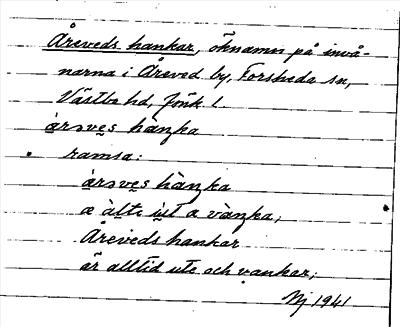 Åreveds hankar, öknamn på invå-
narna i Åreved by, Forsheda sn,
Västbo hd, Jönk l.
àrsvẹs hàŋka
ramsa:
àrsvẹs hàŋka
æ àltı ùt ɑ vàŋka,
Åreveds hankar
är alltid ute och vankar;
Nj 1941